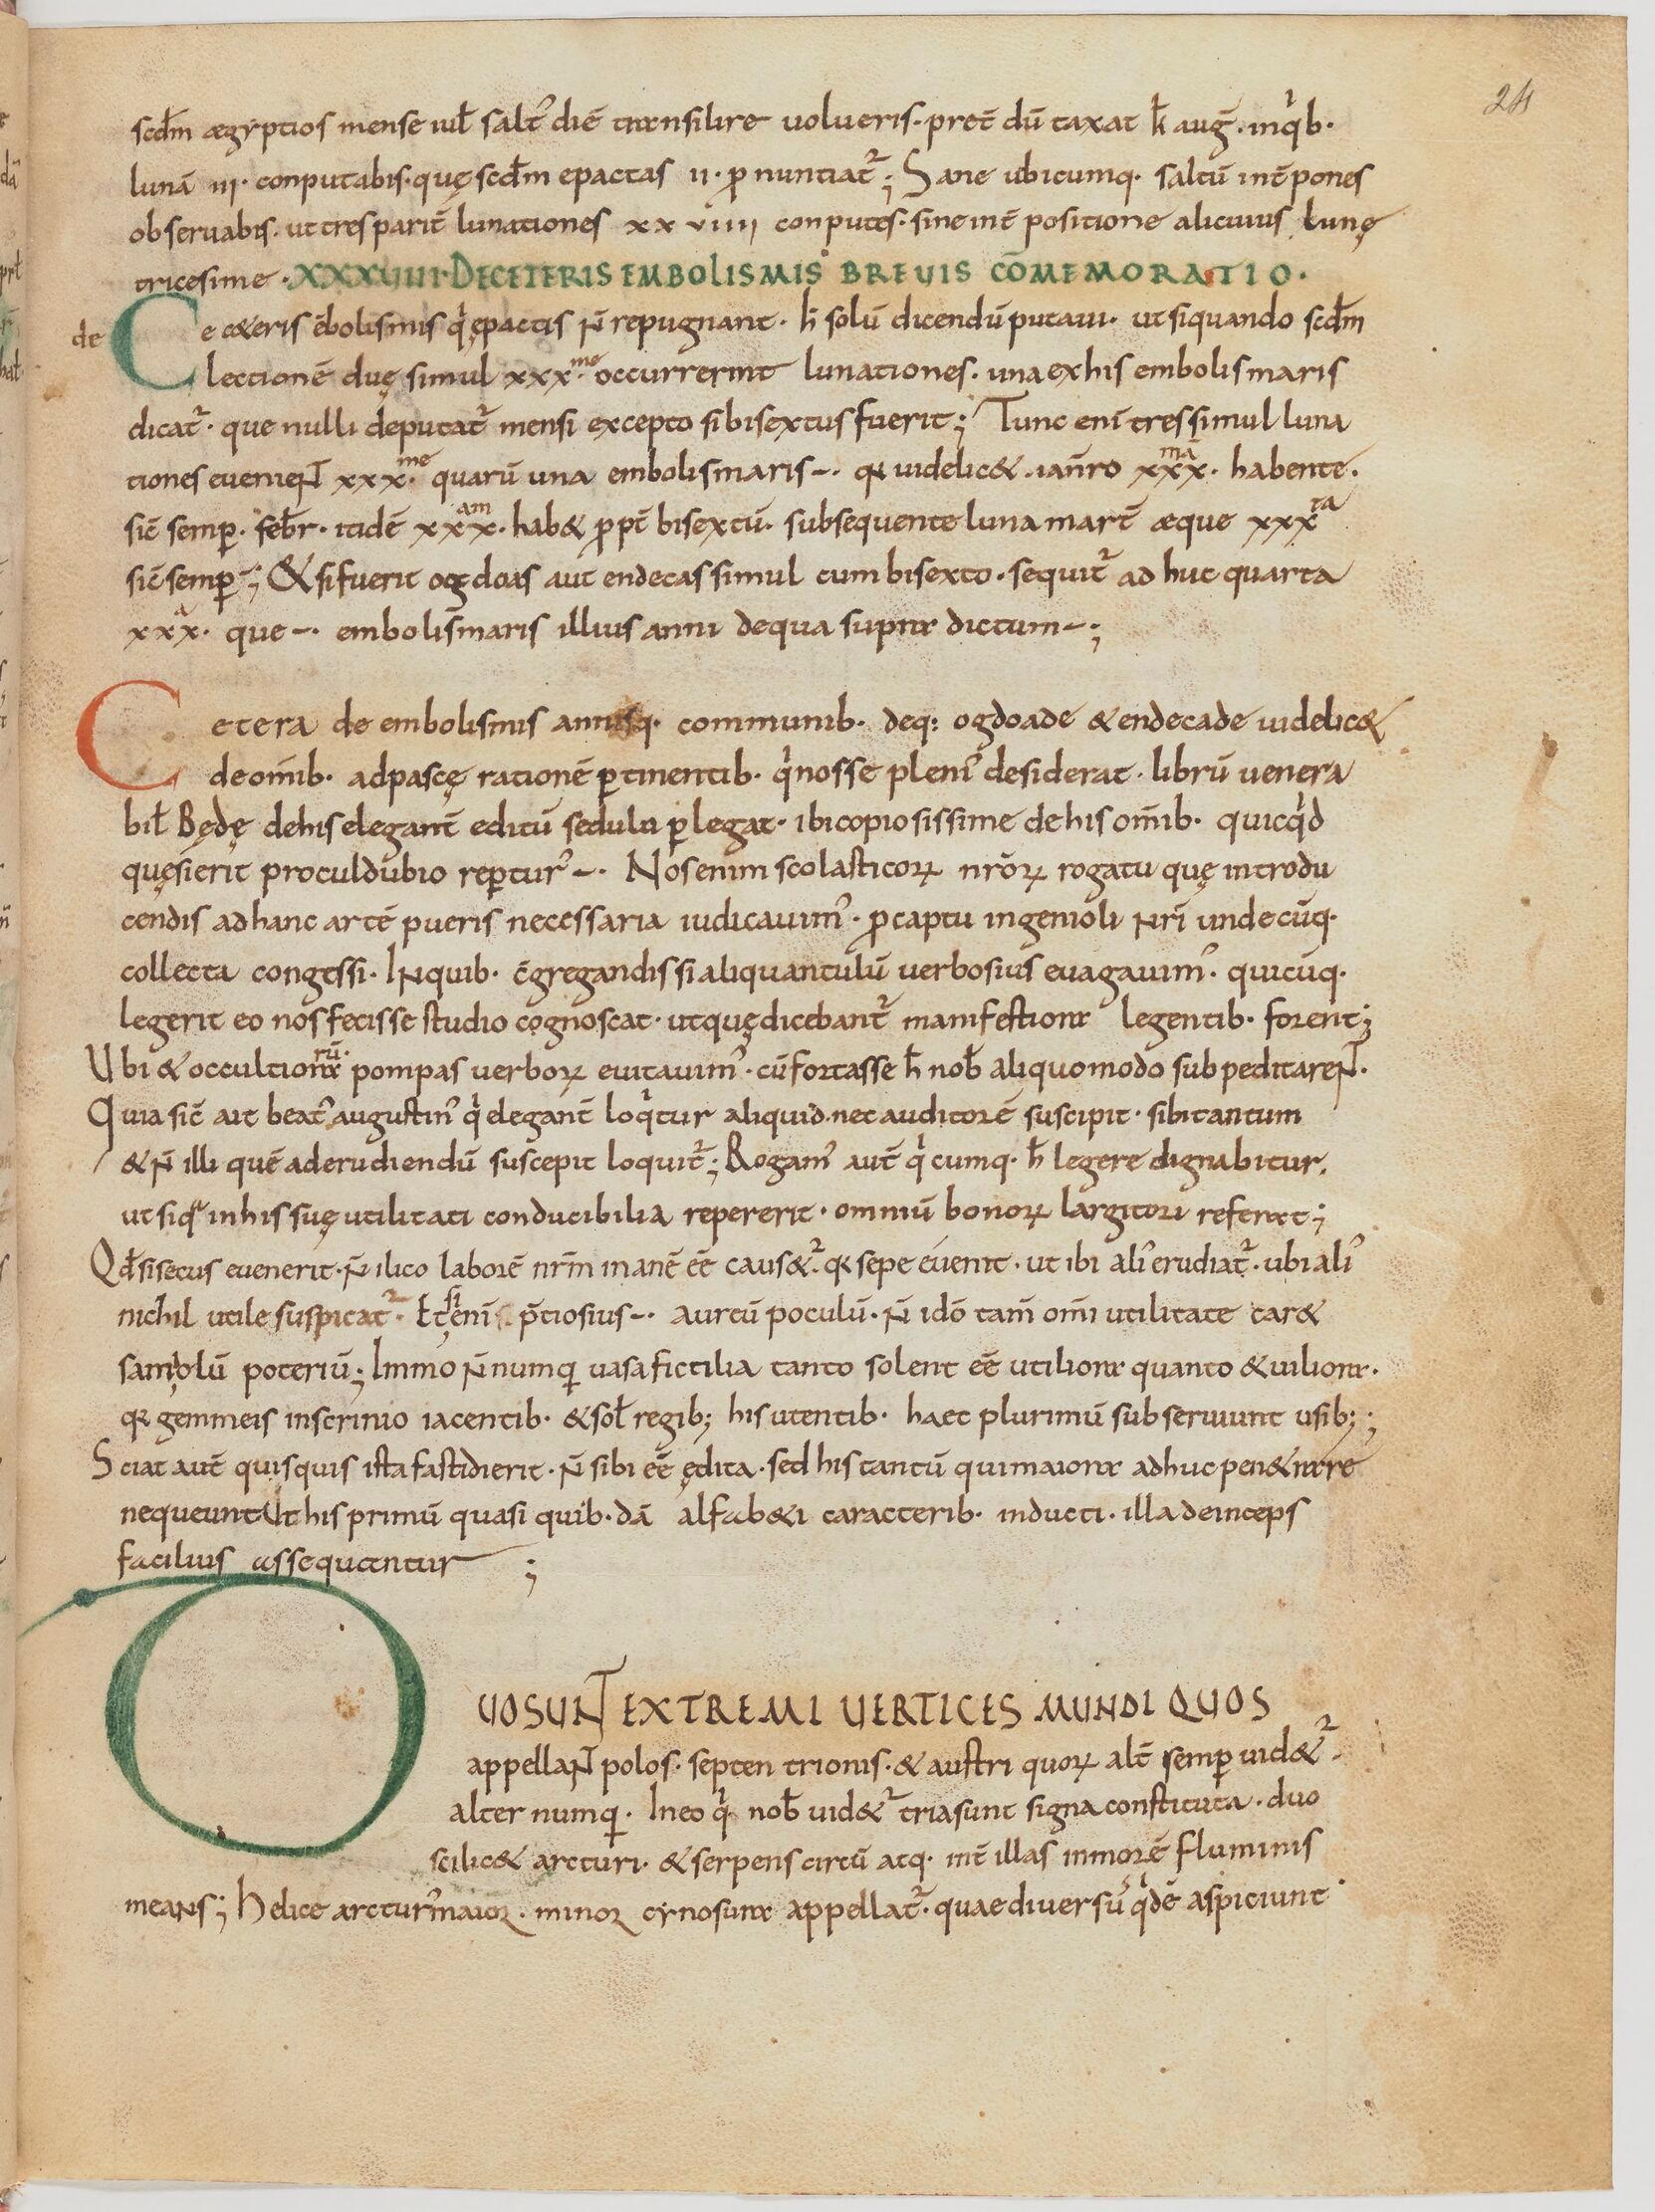 24
scđm ægẏptios mense iul̄ salt᾽ diē transilire uolueris· pret̄ dū taxat k̄ aug̃· inq̇b·
lunā iii· conputabis· quę scđm epactas ii· ꝓnuntiat᷑; Sane ubicumq· saltū int̄pones
obseruabis· ut tres parit̄ lunationes xxviiii conputes· sine int̄positione alicuius lunę
tricesime· XXXVIIII· DE CETERIS EMBOLISMIS BREVIS CŌMEMORATIO·
de
Ce c&eris ēbolismis q̇ epactis n̄ repugnant· h̄ solū dicendū putaui· ut siquando scđm
lectionē duę simul xxx·me occurrerint lunationes· una ex his embolismaris
dicat᷑· que nulli deputat᷑ mensi excepto si bisextus fuerit; Tunc enī tres simul luna
tiones eueniennt xxx·me quarū una embolismaris–· qꝛ uidelic& ·ian̄ro xxx·ma habente·
sic̄ semꝑ· feb̄r· itidē xxx·am hab& ꝓpt̄ bisextū· subsequente luna mart̄ æque xxxta
sic̄ semꝑ–; & si fuerit ogdoas aut endecas simul cum bisexto· sequit᷑ ad huc quarta
xxx·a que–· embolismaris illius anni de qua supra dictum–;
Cetera de embolismis annisq· communib· deq: ogdoade & endecade uidelic&
de om̄ib· ad pascę rationē ꝑtinentib· q̇ nosse pleni᾽ desiderat· librū uenera
bil̄ Będę de his elegant̄ editū sedulu ꝑlegat· ibi copiosissime de his om̄ib· quicq̇d
quęsierit procul dubio reꝑtur᾽–· Nos enim scolasticoꝝ nr̄oꝝ rogatu quę introdu
cendis ad hanc artē pueris necessaria iudicauim᾽· ꝓ captu ingenioli nr̄i undecūq·
collecta congessi· In quib· c̄gregandis si aliquantulū uerbosius euagauim᾽· quicūq·
legerit eo nos fecisse studio cognoscat· ut quę dicebant᷑ manifestiora legentib· forent;
Ubi & occultiorarū· pompas uerboꝝ euitauim᾽· cū fortasse h̄ nob̄ aliquomodo subpeditarent·
Quia sic̄ ait beat᾽ augustin᾽ q̇ elegant̄ loq̇tur aliquid· nec auditorē suscipit· sibi tantum
& n̄ illi quē ad erudiendū suscepit loquit᷑; Rogam᾽ aut̄ q̇cumq· h̄ legere dignabitur·
ut siqͣ in his suę utilitati conducibilia repererit· omniū bonoꝝ largitori referat;
Qđ si secus euenerit· n̄ ilico laborē nr̄m inanē eē caus&᷑· qꝛ sepe euenit· ut ibi ali᾽ erudiat᷑· ubi ali᾽
nichil utile suspicat᷑· Etsi enī p̄tiosius–· aureū poculū· n̄ idō tam̄ om̄i utilitate car&
sambolū poteriū; Immo n̄numq̄ uasa fictilia tanto solent eē utiliora quanto & uiliora·
qꝛ gemmeis in scrinio iacentib· & sol̄ regib; his utentib· haec plurimū subseruiunt usib;;
Sciat aut̄ quisquis ista fastidierit· n̄ sibi eē ędita· sed his tantū qui maiora adhuc pen&rare
nequeunt Ut his primū quasi quib·dā alfab&i caracterib· inducti· illa deinceps
facilius assequentur ;
DUO SUNT EXTREMI UERTICES MUNDI QUOS
appellant polos· septentrionis· & austri quoꝝ alt̄ semꝑ uid&᷑·
alter numq̄· In eo q̇ nob̄ uid&᷑ tria sunt signa constituta· duo
scilic& arcturi· & serpens circū atq· int̄ illas inmorē fluminis
means; Helice arctur᾽ maior· minor cynosura appellat᷑· quae diuersū q̇dē aspiciunt